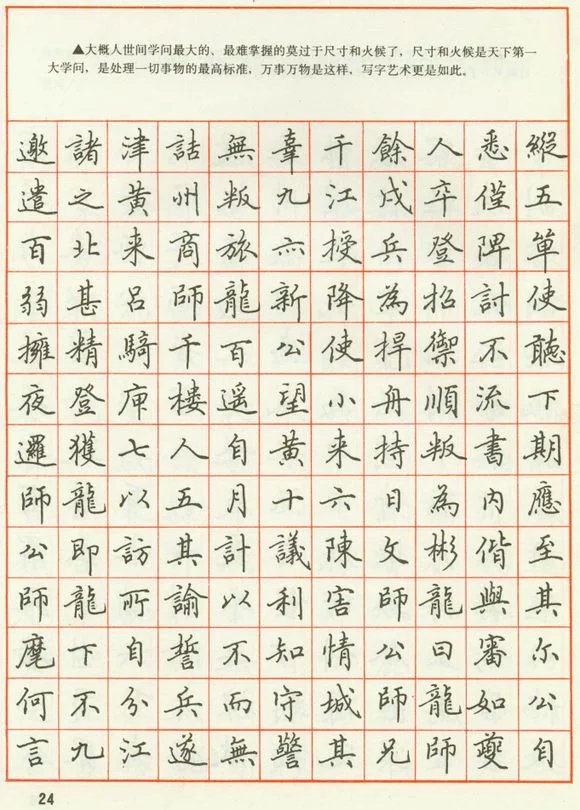 ▲大概人世间学问最大的、最难掌握的莫过于尺寸和火候了，尺寸和火候是天下第一
大学问，是处理一切事物的最高标准，万事万物是这样，写字艺术更是如此。
邀諸津詰無辜千餘人悉縱
遣之黃州叛九江戍卒僅五
百北来商旅六授兵登陴單
弱甚呂師龍新降為招討使
擁精騎千百公使捍禦不聽
夜登庳楼遥望小舟順流下
邏獲七人自黃来持叛書期
師龍以五月十六日為内應
公即訪其計議陳文彬偕至
師龍所諭以利害師龍與其
麾下自誓不知情公曰審尔
何不分兵而守城師龍如公
言九江遂無警其兄師夔自
24